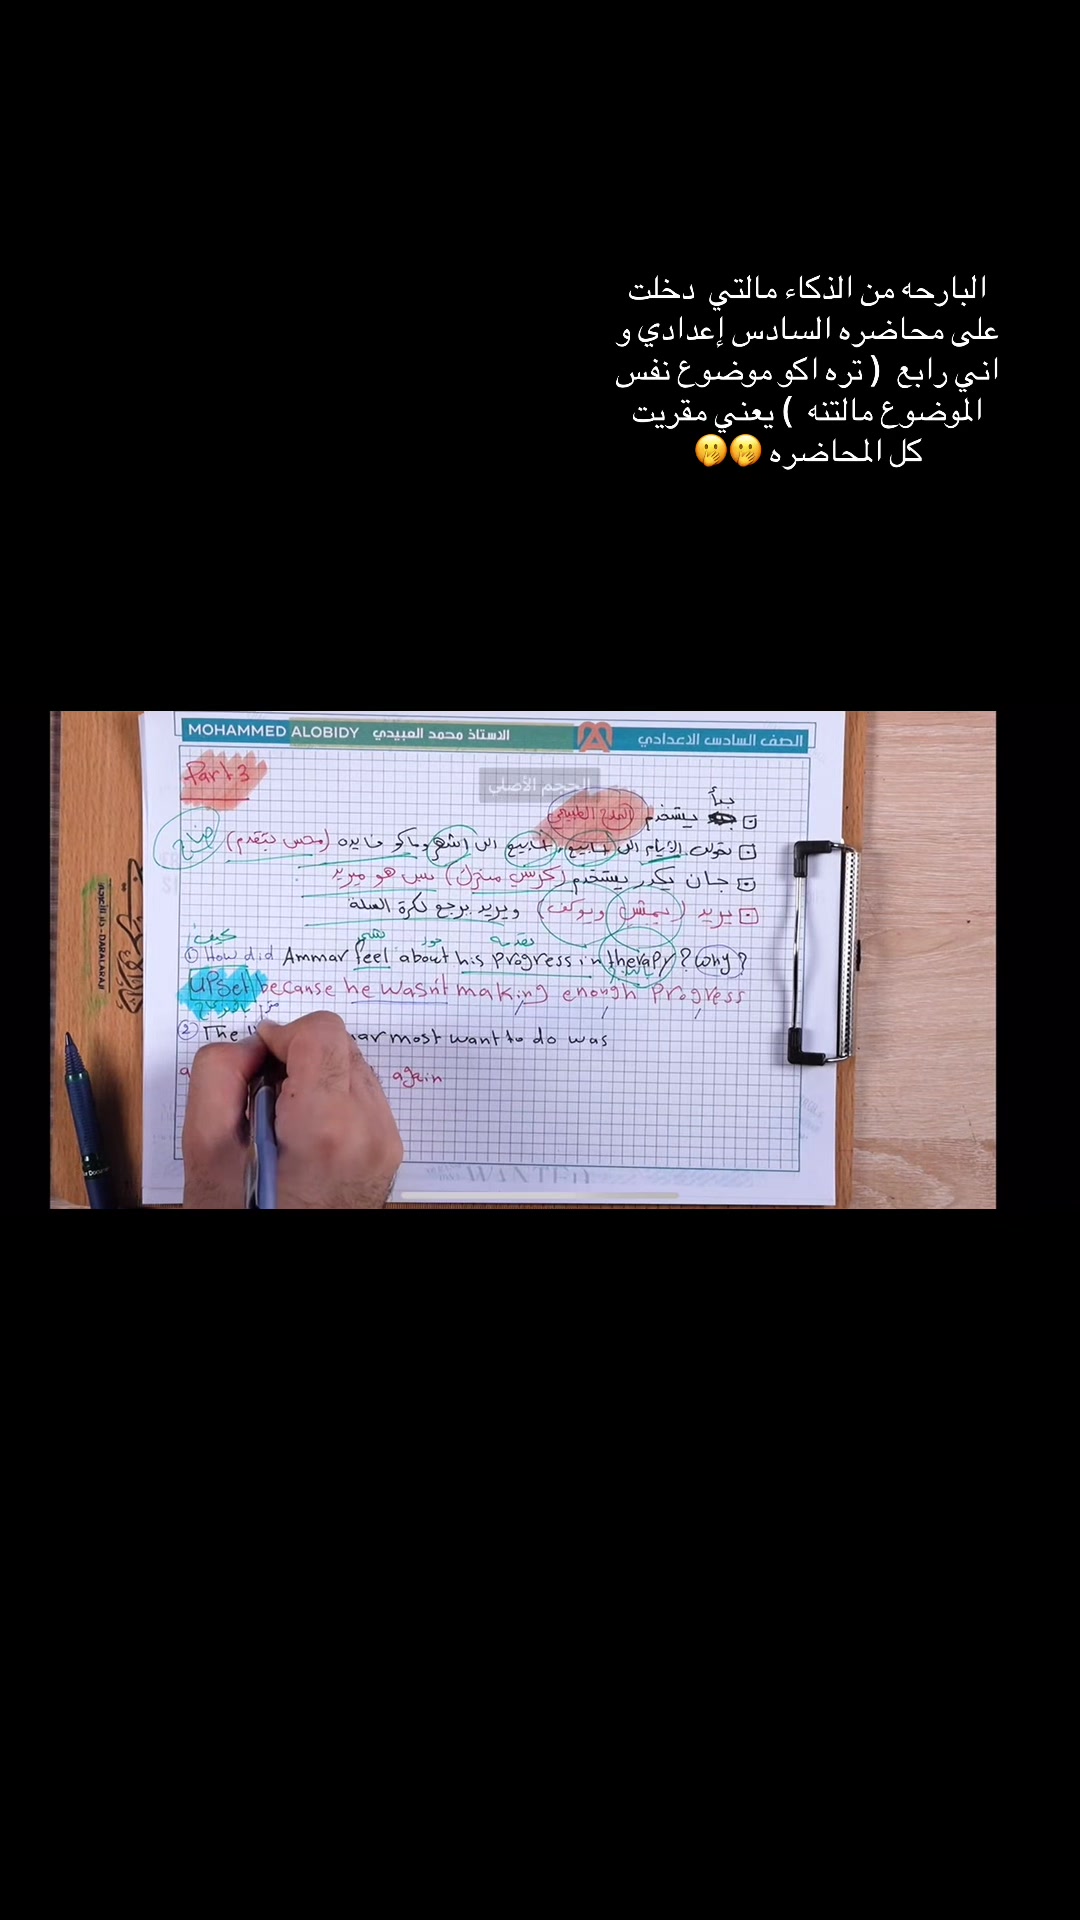 البارحه من الذكاء مالتي دخلت
على محاضره السادس إعدادي و
اني رابع ( تره اكو موضوع نفس
الموضوع مالتنه ) يعني مقريت
كل المحاضره 🤭🤭
MOHAMMED ALOBIDY الاستاذ محمد العبيدي الصف السادس الاعدادي
Part 3
الحجم الأصلي
بدأ
يستخدم (العلاج الطبيعي)
تحولت الايام الى اسابيع، اسابيع الى اشهر وماكو فايده (محس بتقدم)
جان يكدر يستخدم (كرسي متحرك) بس هو ميريد
يريد (يمشي ويوكف) ويريد يرجع لكرة السلة
كيف
① How did Ammar feel about his progress in therapy? Why?
upset because he wasn't making enough progress
② The most want to do was
again
دار الاعرجي - DARALARAJI